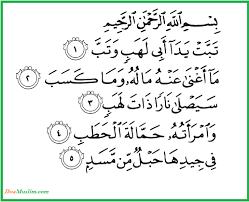 بِسْمِ اللَّهِ الرَّحْمَٰنِ الرَّحِيمِ
تَبَّتْ يَدَا أَبِي لَهَبٍ وَتَبَّ ١
مَا أَغْنَىٰ عَنْهُ مَالُهُ وَمَا كَسَبَ ٢
سَيَصْلَىٰ نَارًا ذَاتَ لَهَبٍ ٣
وَامْرَأَتُهُ حَمَّالَةَ الْحَطَبِ ٤
فِي جِيدِهَا حَبْلٌ مِّن مَّسَدٍ ٥
DuaMuslim.com